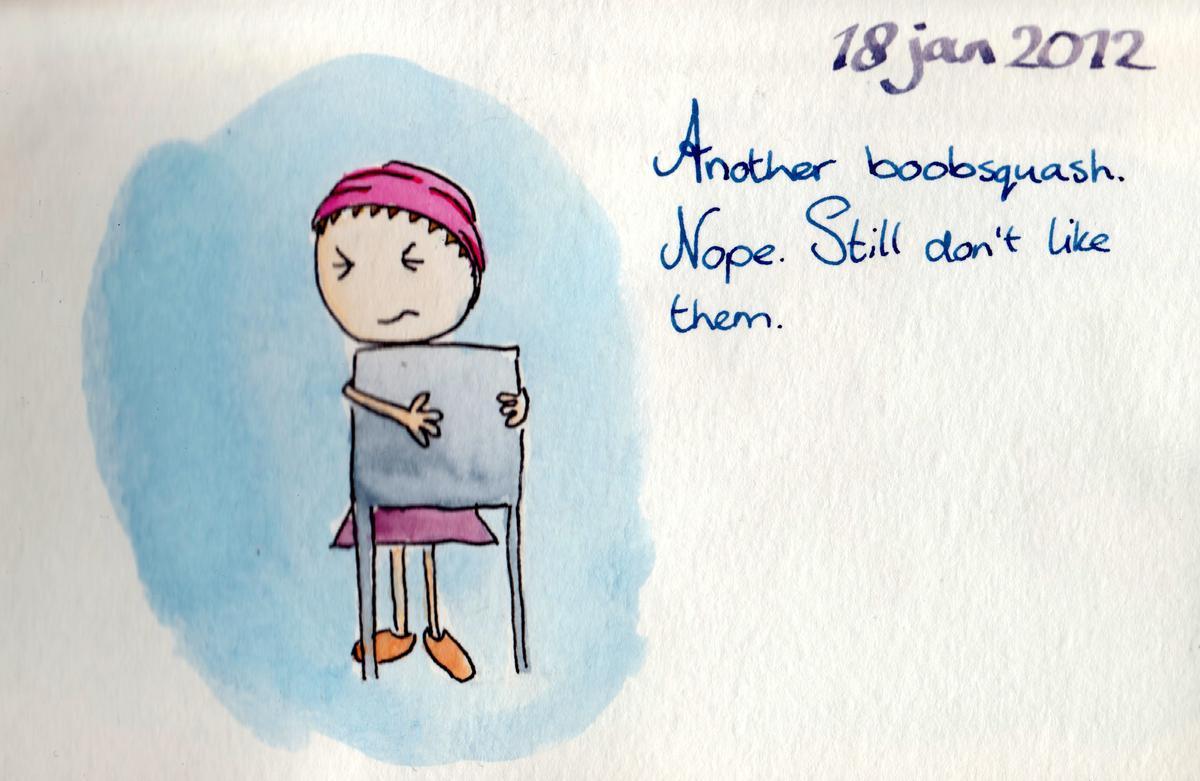 18 jan 2012
Another boobsquash.
Nope. Still don't like
them.